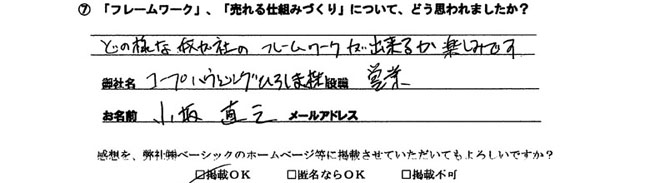 ⑦ 「フレームワーク」、「売れる仕組みづくり」について、どう思われましたか？
どの様な奴が社のフレームワークが出来るか楽しみです
御社名 コープハウジングひろしま㈱ 役職 営業
お名前 小坂 直之 メールアドレス
感想を、弊社㈱ベーシックのホームページ等に掲載させていただいてもよろしいですか？
□掲載OK □匿名ならOK □掲載不可